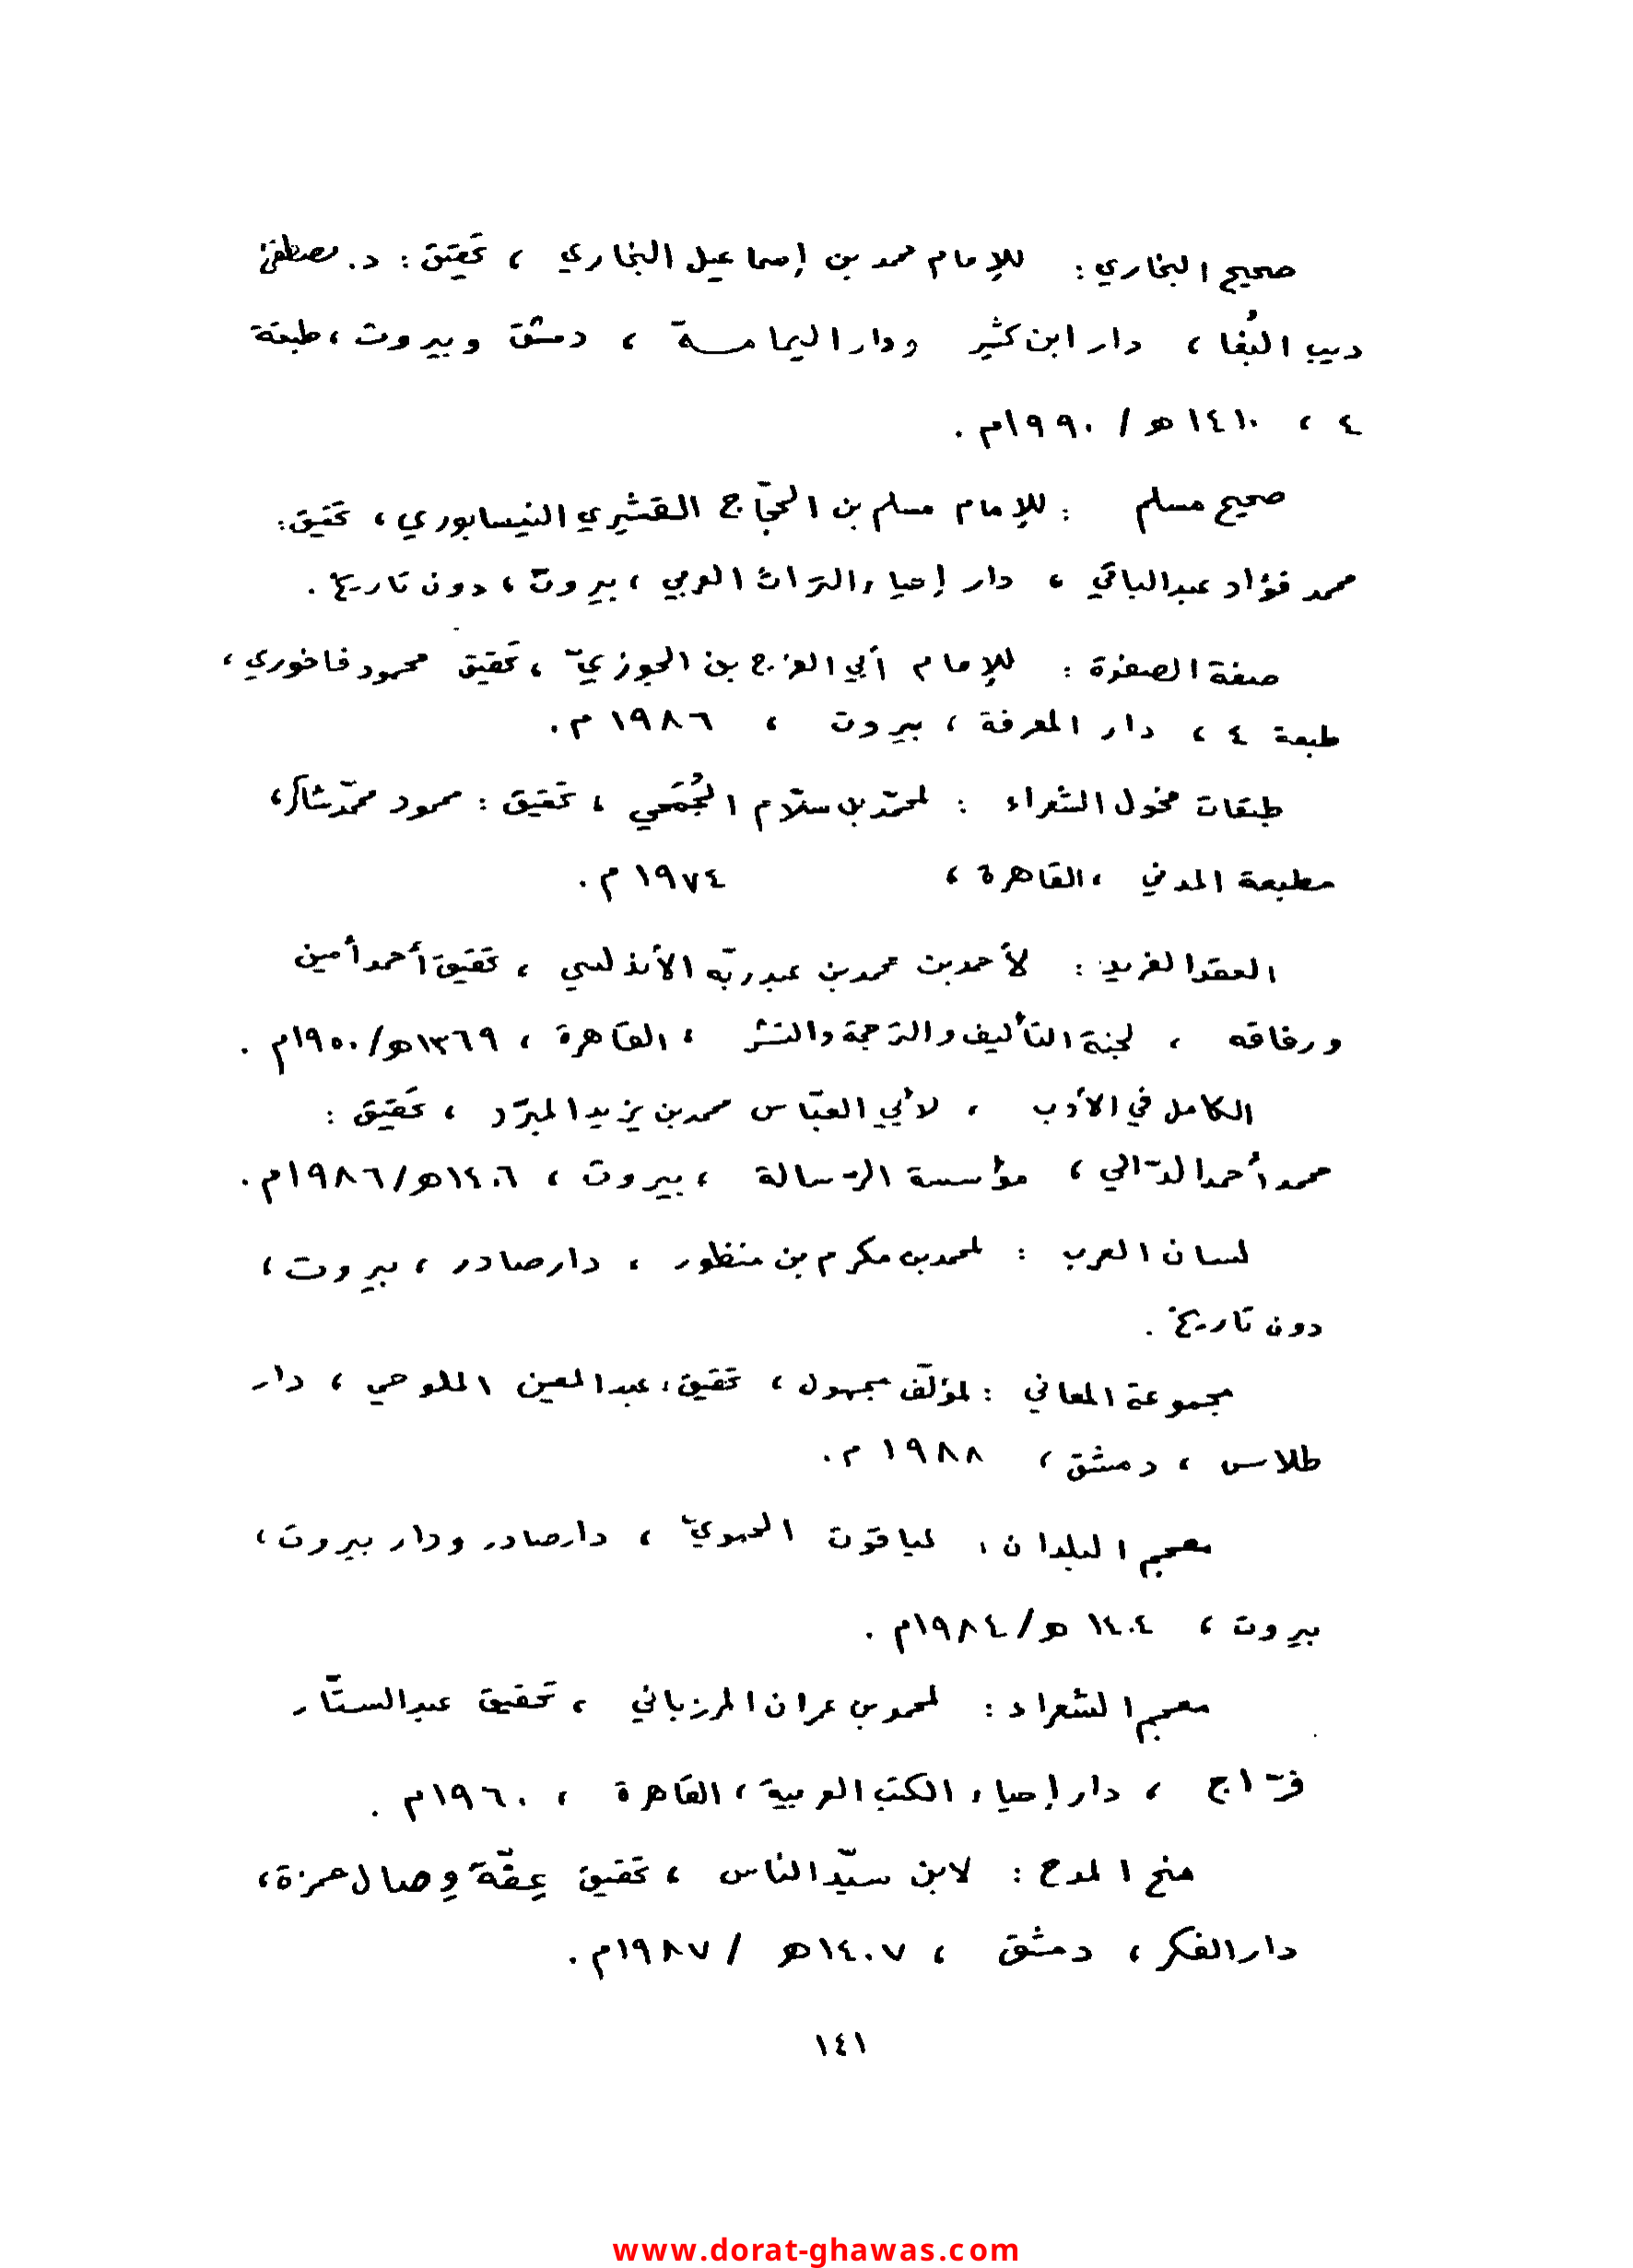 صحيح البخاري : للإمام محمد بن إسماعيل البخاري ، تحقيق : د. مصطفى
ديب البُغا ، دار ابن كثير ودار اليمامة ، دمشق وبيروت ، طبعة
٤ ، ١٤١٠ هـ / ١٩٩٠م .
صحيح مسلم : للإمام مسلم بن الحجّاج القشيري النيسابوري ، تحقيق :
محمد فؤاد عبدالباقي ، دار إحياء التراث العربي ، بيروت ، دون تاريخ .
صفة الصفوة : للإمام أبي الفرج بن الجوزيّ ، تحقيق محمود فاخوري ،
طبعة ٤ ، دار المعرفة ، بيروت ، ١٩٨٦ م .
طبقات فحول الشعراء : لمحمّد بن سلّام الجُمَحي ، تحقيق : محمود محمّد شاكر ،
مطبعة المدني ، القاهرة ، ١٩٧٤ م .
العقد الفريد : لأحمد بن محمد بن عبد ربّه الأندلسي ، تحقيق أحمد أمين
ورفاقه ، لجنة التأليف والترجمة والنشر ، القاهرة ، ١٣٦٩هـ/١٩٥٠م .
الكامل في الأدب ، لأبي العبّاس محمد بن يزيد المبرّد ، تحقيق :
محمد أحمد الدّالي ، مؤسسة الرّسالة ، بيروت ، ١٤٠٦هـ/١٩٨٦م .
لسان العرب : لمحمد بن مكرم بن منظور ، دار صادر ، بيروت ،
دون تاريخ .
مجموعة المعاني : لمؤلّف مجهول ، تحقيق : عبد المعين الملوحي ، دار
طلاس ، دمشق ، ١٩٨٨ م .
معجم البلدان : لياقوت الحمويّ ، دار صادر ودار بيروت ،
بيروت ، ١٤٠٤ هـ / ١٩٨٤م .
معجم الشعراء : لمحمد بن عمران المرزباني ، تحقيق عبد الستّار
فرّاج ، دار إحياء الكتب العربية ، القاهرة ، ١٩٦٠م .
منح المدح : لابن سيّد الناس ، تحقيق عِفّة وِصال حمزة ،
دار الفكر ، دمشق ، ١٤٠٧هـ / ١٩٨٧م .
١٤١
www.dorat-ghawas.com